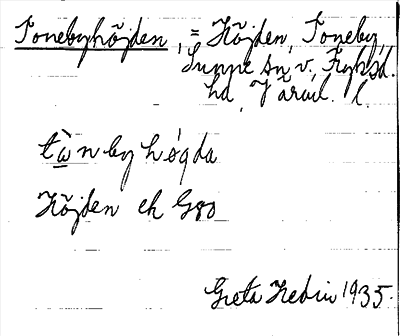 Tonebyhöjden, = Höjden, Toneby,
Sunne sn, v., Fryksd.
hd, Värml. l.
tὼnbyhǿgda
Höjden ek G80
Greta Hedin 1935.